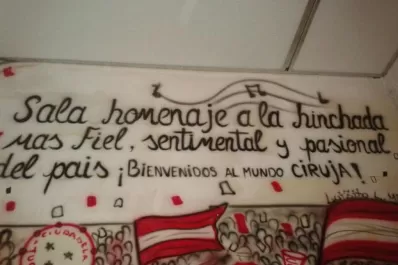 Sala homenaje a la hinchada
mas Fiel, sentimental y pasional
del pais ¡BIENVENIDOS AL MUNDO CIRUJA!